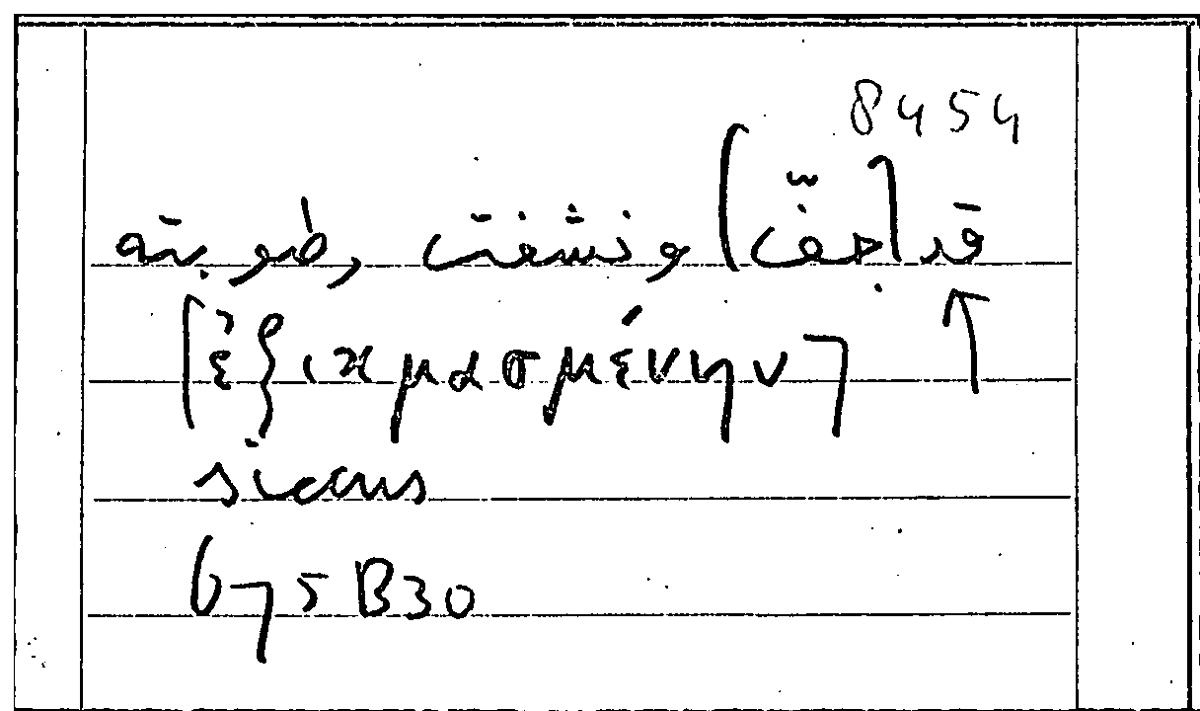 8454
قد [جفّت] ونشفت رطوبته
[ἐξικμασμένην] ↑
siccus
675B30